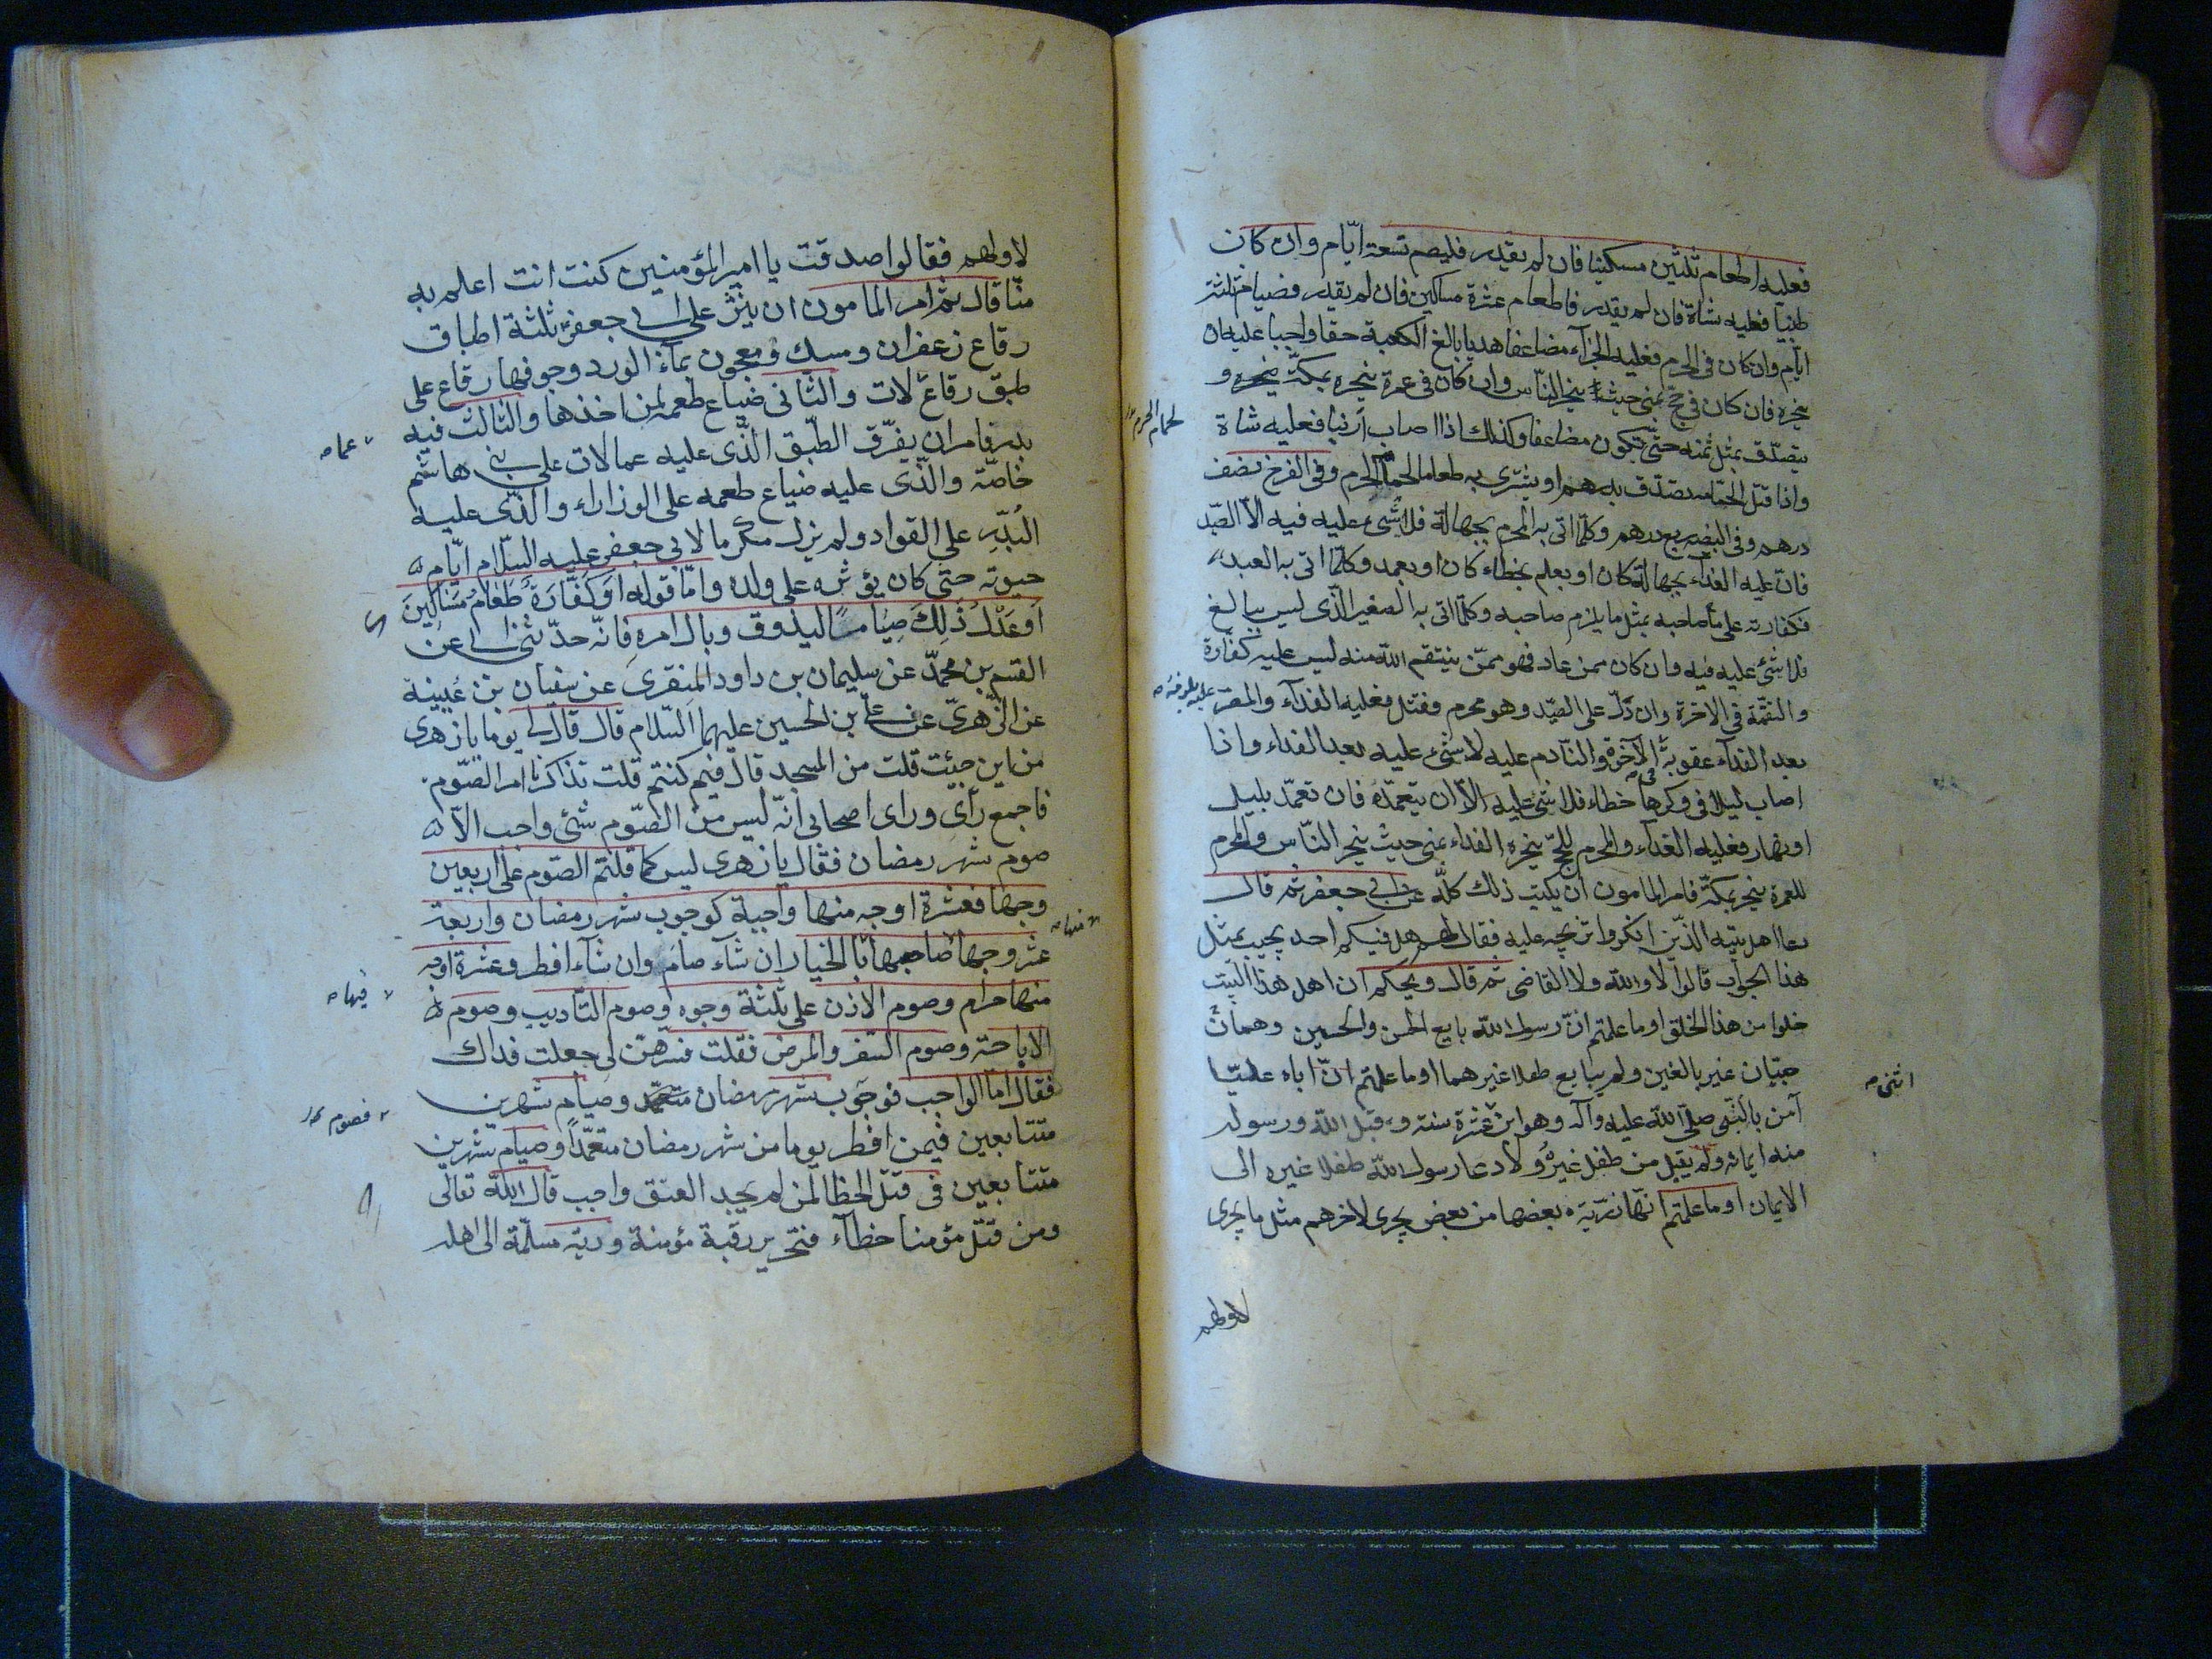 فعليه اطعام ثلثين مسكينا فان لم يقدر فليصم تسعة ايّام وان كان
ظبيا فعليه شاة فان لم يقدر فاطعام عشرة مساكين فان لم يقدر فصيام ثلثة
ايّام وان كان في الحرم فعليه الجزآء مضاعفا هديا بالغ الكعبة حقا واجبا عليه ان
ينحره فان كان في حج بمنى حيث ينحر النّاس وان كان في عمرة ينحره بمكّة و
يتصدّق بمثل ثمنه حتّى يكون مضاعفا وكذلك اذا اصاب ارنبا فعليه شاة
واذا قتل الحمامة تصدّق بدرهم او يشترى به طعاما لحمام الحرم وفى الفرخ نصف
درهم وفى البيضة ربع درهم وكلّما اتى به المحرم بجهالة فلا شئ عليه فيه الّا الصّيد
فان عليه الفدآء بجهالة كان او بعلم بخطاء كان او بعمد وكلّما اتى به العبد
فكفارته على صاحبه بمثل ما يلزم صاحبه وكلّما اتى به الصغير الّذى ليس ببالغ
فلا شئ عليه فيه وان كان ممن عاد فهو ممّن ينتقم اللّه منه ليس عليه كفّارة
والنقمة في الاخرة وان دَلّ على الصّيد وهو محرم فقتل فعليه الفدآء والمصرّ عليه يلزمه
بعد الفدآء عقوبة فى الآخرة والنّادم عليه لا شئ عليه بعد الفداء واذا
اصاب ليلا في وكرها خطاء فلا شئ عليه الّا ان يتعمّده فان تعمّد بليل
او نهار فعليه الفدآء والمحرم للحجّ ينحر الفداء بمنى حيث ينحر النّاس والمحرم
للعمرة ينحر بمكّة فامر المامون ان يكتب ذلك كلّه عن ابي جعفر ثم قال
دعا اهل بيته الّذين انكروا تزويجه عليه فقال لهم هل فيكم احد يجيب بمثل
هذا الجواب قالوا لا واللّه ولا القاضى ثم قال ويحكم ان اهل هذا البيت
خلوا من هذا الخلق اوما علمتم انّ رسول اللّه بايع الحسن والحسين وهما
صبيّان غير بالغين ولم يبايع طفلا غيرهما اوما علمتم انّ اباه عليّا
آمن بالنّبي صلّى اللّه عليه وآله وهو ابن اثنى عشرة سنة وقبل اللّه ورسوله
منه ايمانه ولم يقبل من طفل غيره ولا دعا رسول اللّه طفلا غيره الى
الايمان اوما علمتم انّها ذرّيّة بعضها من بعض يجرى لاخرهم مثل ما يجرى
لاولهم
لاولهم فقالوا صدقت يا امير المؤمنين كنت انت اعلم به
منّا قال ثم امر المامون ان ينثر على ابي جعفر ثلثة اطباق
رقاع زعفران ومسك ومعجون بمآء الورد وجوفها رقاع على
طبق رقاع عمالات والثّانى ضياع طعمة لمن اخذها والثالث فيه
بدر فامر ان يفرّق الطّبق الّذى عليه عمالات على بنى هاشم
خاصّة والّذى عليه ضياع طعمه على الوزراء والّذى عليه
البُدر على القواد ولم يزل مكرما لابي جعفر عليه السّلام ايّام
حيوته حتّى كان يؤثره على ولده وامّا قوله او كَفَّارَةُ طَعامُ مَسَاكِينَ
اَو عَدْلُ ذٰلِكَ صِيَامًا ليذوق وبال امره فانّه حدّثنى ابي عن
القسم بن محمّد عن سليمان بن داود المِنقرى عن سفيان بن عُيينة
عن الزّهرىّ عن علىّ بن الحسين عليهما السّلام قال قال لى يوما يا زهرى
من اين جيئت قلت من المسجد قال فيم كنتم قلت تذاكرنا امر الصّوم
فاجمع رأى وراى اصحابى انّه ليس من الصّوم شئ واجب الّا
صوم شهر رمضان فقال يا زهرى ليس كما قلتم الصّوم على اربعين
وجها فعشرة اوجه منها واجبة كوجوب شهر رمضان واربعة
عشر وجها صاحبها فيها بالخيار ان شآء صام وان شآء افطر وعشرة اوجه
منها حرام وصوم الاذن على ثلثة وجوه وصوم التّاديب وصوم
الاباحة وصوم السّفر والمرض فقلت فسّرهنّ لى جعلت فداك
فقال امّا الواجب فصوم شهر رمضان وصيام شهرين
متتابعين فيمن افطر يوما من شهر رمضان متعمّداً وصيام شهرين
متتابعين في قتل الخطا لمن لم يجد العتق واجب قال اللّه تعالى
ومن قتل مؤمنا خطآء فتحرير رقبة مؤمنة ودية مسلّمة الى اهله